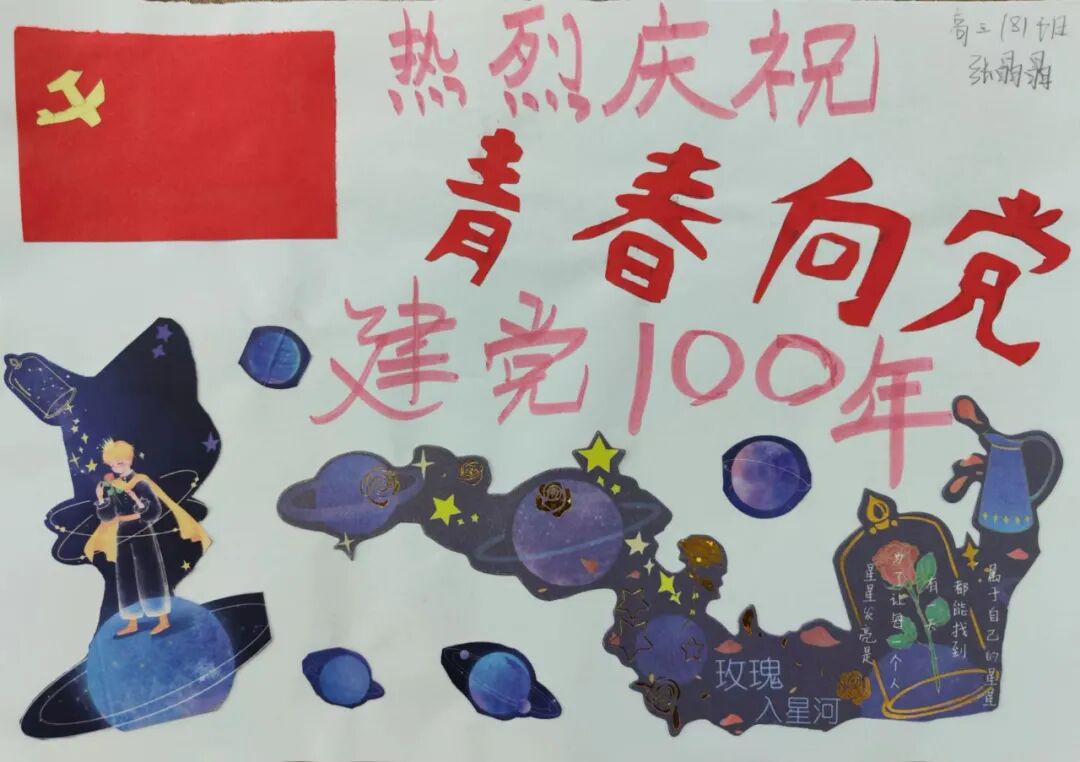 高三181班
热烈庆祝
青春向党
建党100年
星星发亮是
为了让每一个人
有一天
都能找到
属于自己的星星
玫瑰
入星河